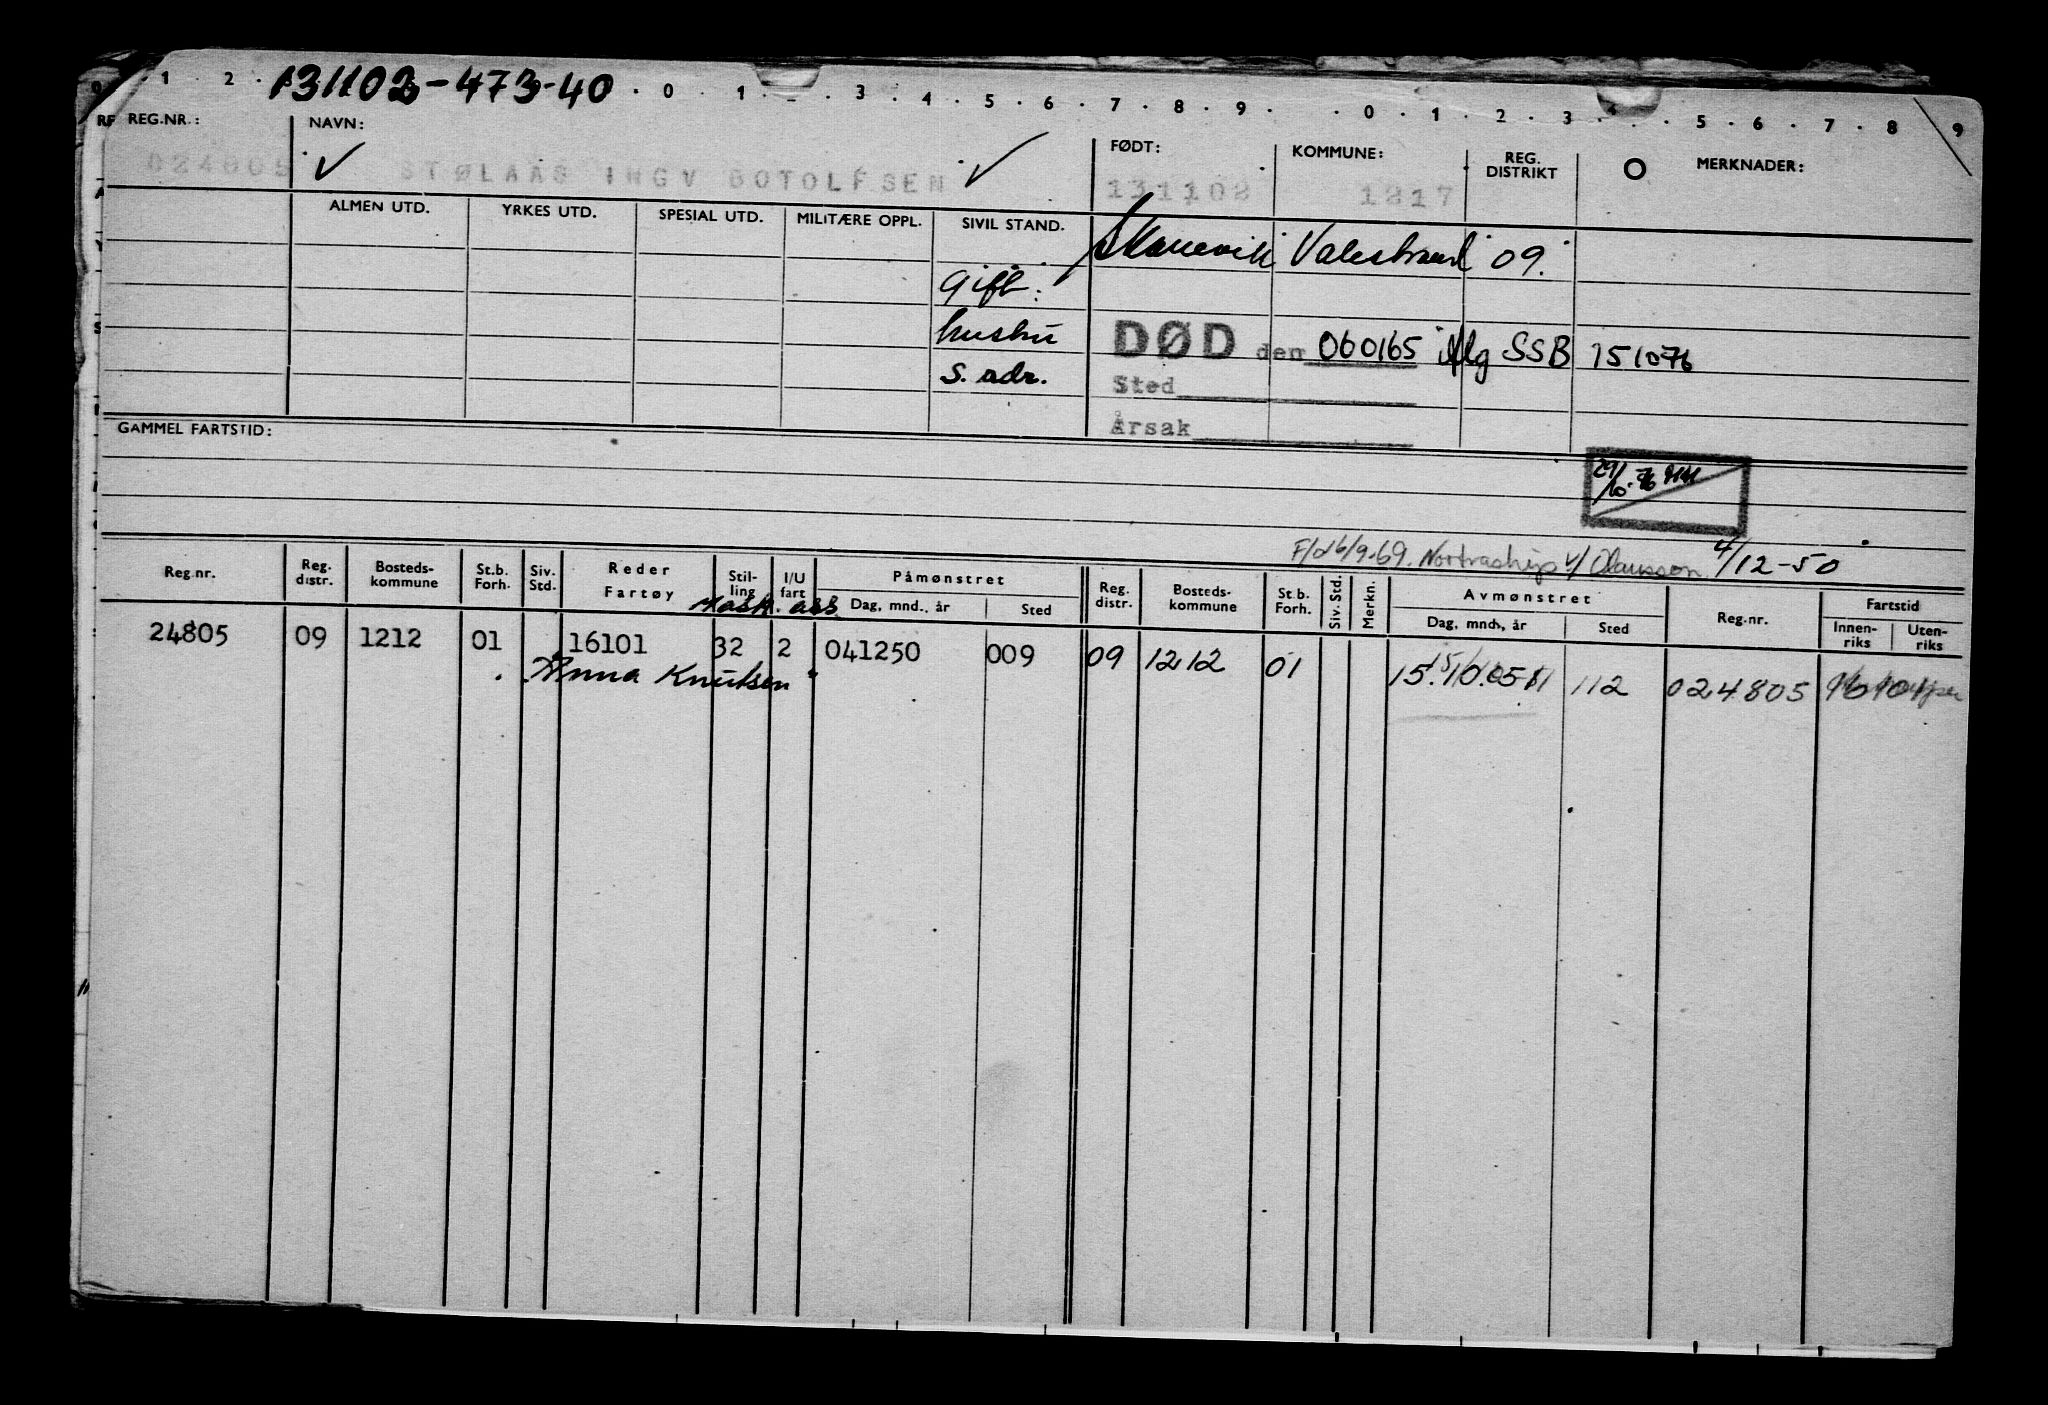 131102-473-40
0 . 1 . 2 . . 0 . 1 . . 3 . 4 . 5 . 6 . 7 . 8 . 9 . . 0 . 1 . 2 . 3 . . 5 . 6 . 7 . 8 . 9
RF REG.NR.: NAVN: FØDT: KOMMUNE: REG. DISTRIKT O MERKNADER:
024805 ✓ STØLAAS INGV BOTOLFSEN ✓ 131102 1217
ALMEN UTD. YRKES UTD. SPESIAL UTD. MILITÆRE OPPL. SIVIL STAND.
Skanevik Valestrand 09.
gift.
hustru
DØD den 060165 iflg SSB 151076
s. adr.
Sted
Årsak
GAMMEL FARTSTID:
29/10-76
F/d 6/9-69. Nortraship v/ Olausson 4/12-50
Reg.nr. Reg. distr. Bosteds-kommune St.b. Forh. Siv. Std. Reder Fartøy Stil-ling I/U fart Påmønstret Dag, mnd., år Sted Reg. distr. Bosteds-kommune St.b. Forh. Siv. Std. Merkn. Avmønstret Dag, mnd., år Sted Reg.nr. Fartstid Innen-riks Uten-riks
Mask. ass
24805 09 1212 01 16101 32 2 041250 009 09 1212 01 112 024805
"Anna Knutsen"